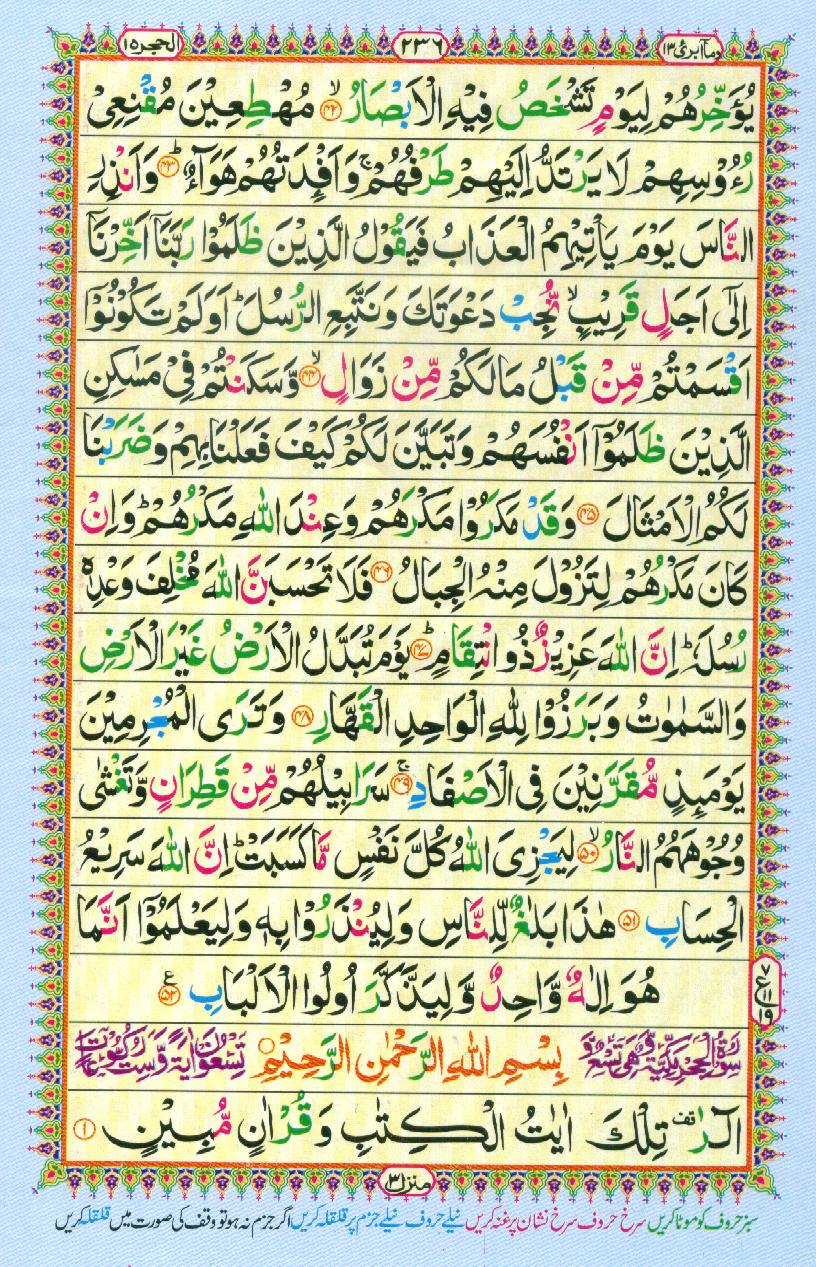 وماابرئ ١٣
٢٣٦
الحجر ١٥
يُؤَخِّرُهُمْ لِيَوْمٍ تَشْخَصُ فِيْهِ الْاَبْصَارُ ۙ﴿۴۲﴾ مُهْطِعِيْنَ مُقْنِعِىْ
رُءُوْسِهِمْ لَا يَرْتَدُّ اِلَيْهِمْ طَرْفُهُمْ ۚ وَاَفْـِٕدَتُهُمْ هَوَآءٌ ؕ﴿۴۳﴾ وَاَنْذِرِ
النَّاسَ يَوْمَ يَاْتِيْهِمُ الْعَذَابُ فَيَقُوْلُ الَّذِيْنَ ظَلَمُوْا رَبَّنَاۤ اَخِّرْنَاۤ
اِلٰٓى اَجَلٍ قَرِيْبٍ ۙ نُّجِبْ دَعْوَتَكَ وَنَتَّبِعِ الرُّسُلَ ؕ اَوَلَمْ تَكُوْنُوْۤا
اَقْسَمْتُمْ مِّنْ قَبْلُ مَا لَكُمْ مِّنْ زَوَالٍ ۙ﴿۴۴﴾ وَّسَكَنْتُمْ فِىْ مَسٰكِنِ
الَّذِيْنَ ظَلَمُوْۤا اَنْفُسَهُمْ وَتَبَيَّنَ لَكُمْ كَيْفَ فَعَلْنَا بِهِمْ وَضَرَبْنَا
لَكُمُ الْاَمْثَالَ ﴿۴۵﴾ وَقَدْ مَكَرُوْا مَكْرَهُمْ وَعِنْدَ اللّٰهِ مَكْرُهُمْ ؕ وَاِنْ
كَانَ مَكْرُهُمْ لِتَزُوْلَ مِنْهُ الْجِبَالُ ﴿۴۶﴾ فَلَا تَحْسَبَنَّ اللّٰهَ مُخْلِفَ وَعْدِهٖ
رُسُلَهٗ ؕ اِنَّ اللّٰهَ عَزِيْزٌ ذُو انْتِقَامٍ ؕ﴿۴۷﴾ يَوْمَ تُبَدَّلُ الْاَرْضُ غَيْرَ الْاَرْضِ
وَالسَّمٰوٰتُ وَبَرَزُوْا لِلّٰهِ الْوَاحِدِ الْقَهَّارِ ﴿۴۸﴾ وَتَرَى الْمُجْرِمِيْنَ
يَوْمَىِٕذٍ مُّقَرَّنِيْنَ فِى الْاَصْفَادِ ۚ﴿۴۹﴾ سَرَابِيْلُهُمْ مِّنْ قَطِرَانٍ وَّتَغْشٰى
وُجُوْهَهُمُ النَّارُ ۙ﴿۵۰﴾ لِيَجْزِىَ اللّٰهُ كُلَّ نَفْسٍ مَّا كَسَبَتْ ؕ اِنَّ اللّٰهَ سَرِيْعُ
الْحِسَابِ ﴿۵۱﴾ هٰذَا بَلٰغٌ لِّلنَّاسِ وَلِيُنْذَرُوْا بِهٖ وَلِيَعْلَمُوْۤا اَنَّمَا
هُوَ اِلٰهٌ وَّاحِدٌ وَّلِيَذَّكَّرَ اُولُوا الْاَلْبَابِ ﴿۵۲﴾ ع
٧
ع ١١
١٩
سُوْرَةُ الْحِجْرِ مَكِّيَّةٌ وَّهِىَ تِسْعٌ وَّ بِسْمِ اللّٰهِ الرَّحْمٰنِ الرَّحِيْمِ تِسْعُوْنَ اٰيَةً وَّسِتُّ رُكُوْعَاتٍ
الٓرٰ ۫ قف تِلْكَ اٰيٰتُ الْكِتٰبِ وَقُرْاٰنٍ مُّبِيْنٍ ﴿۱﴾
منزل ٣
سبز حروف کو موٹا کریں سرخ حروف سرخ نشان پر غنہ کریں نیلے حروف نیلے جزم پر قلقلہ کریں اگر جزم نہ ہو تو وقف کی صورت میں قلقلہ کریں